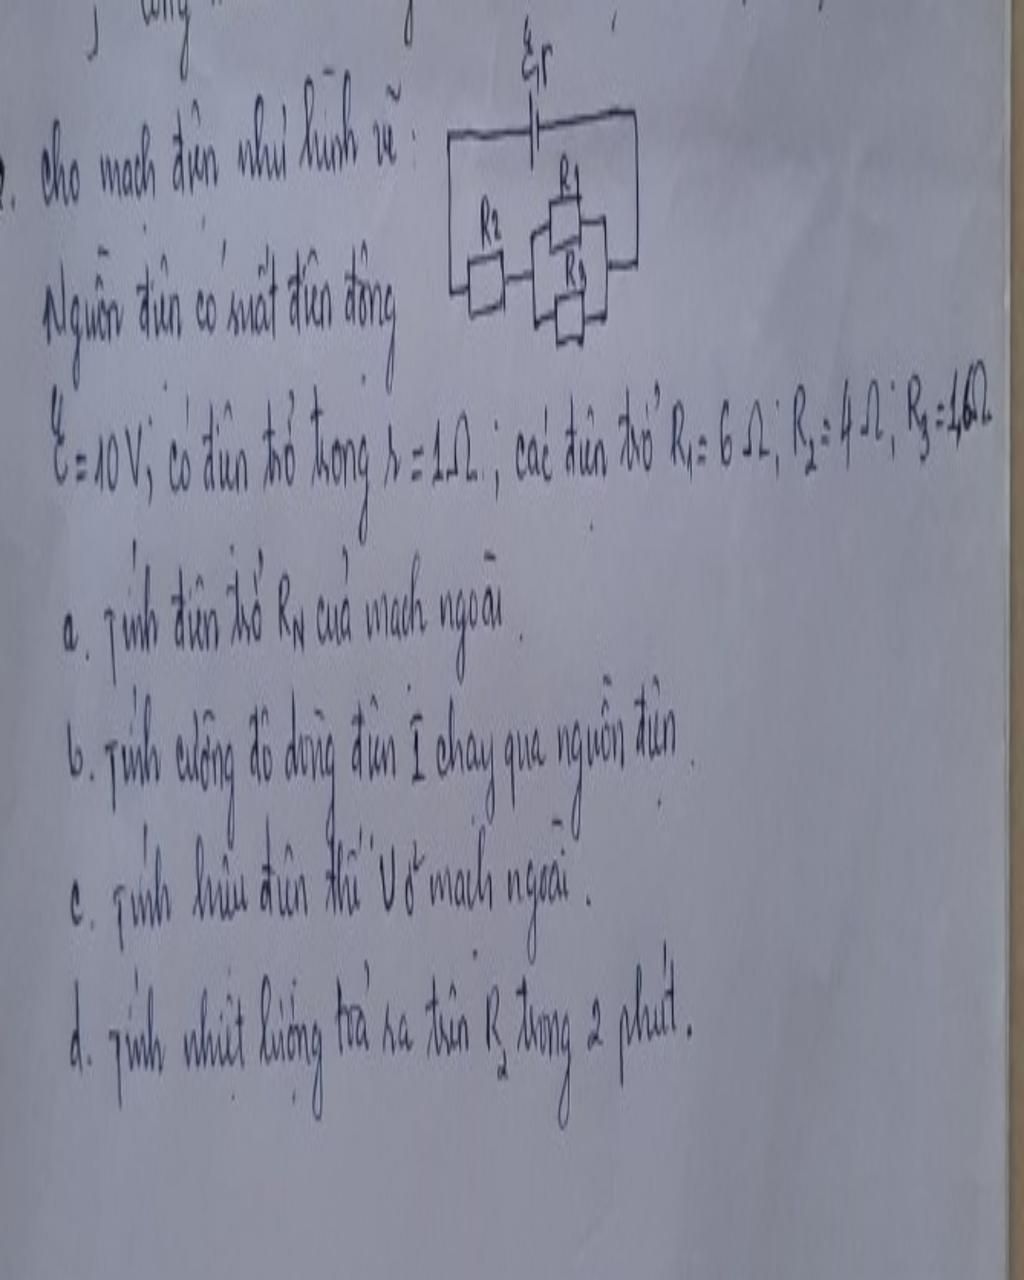 ξ, r
cho mạch điện như hình vẽ:
R1
R2
R3
Nguồn điện có suất điện động
ξ = 10V; có điện trở trong r = 1Ω; các điện trở R1 = 6Ω; R2 = 4Ω; R3 = 1,6Ω
a. Tính điện trở RN của mạch ngoài.
b. Tính cường độ dòng điện I chạy qua nguồn điện.
c. Tính hiệu điện thế U ở mạch ngoài.
d. Tính nhiệt lượng toả ra trên R2 trong 2 phút.